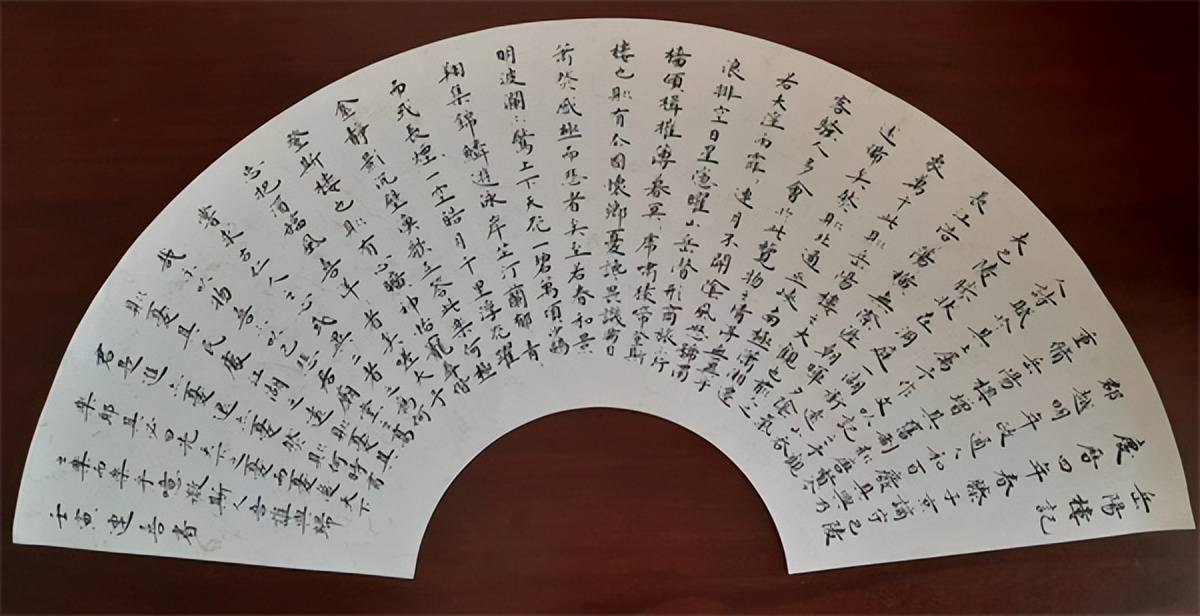 岳陽樓記
慶曆四年春滕子京謫守巴陵
郡越明年政通人和百廢具興乃
重脩岳陽樓增其舊制
人詩賦於其上屬予作文以記
夫巴陵勝狀在洞庭一湖
長江浩湯橫無際涯朝暉夕陰氣
象萬千此則岳陽樓之大觀也前人之
述備矣然則北通巫峽南極瀟湘遷
客騷人多會於此覽物之情得無異乎
若夫霪雨霏〻連月不開陰風怒號濁
浪排空日星隱曜山岳潛形商旅不行
檣傾楫摧薄暮冥〻虎嘯猿啼登斯
樓也則有去國懷鄉憂讒畏譏滿目
蕭然感極而悲者矣至若春和景
明波瀾不驚上下天光一碧萬頃沙鷗
翔集錦鱗遊泳岸芷汀蘭郁〻青〻
而或長煙一空皓月千里浮光躍
金靜影沉璧漁歌互答此樂何極
登斯樓也則有心曠神怡寵辱偕
忘把酒臨風喜洋〻者矣嗟夫予
嘗求古仁人之心或異二者之為何
哉不以物喜不以己悲居廟堂之高
則憂其民處江湖之遠則憂其
君是進亦憂退亦憂然則何時而
樂耶其必曰先天下之憂而憂後天下
之樂而樂乎噫微斯人吾誰與歸
壬寅連善者